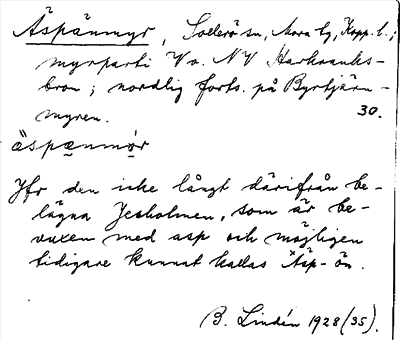 Äspänmyr, Sollerö sn, Mora tg, Kopp. l.;
myrparti V o. NV Harkranks-
bron; nordlig forts. på Byrtjärn-
myren. 30.
äspænmo̱r
Jfr den icke långt därifrån be-
lägna Jesholmen, som är be-
vuxen med asp och möjligen
tidigare kunnat kallas *Äsp-ön.
B. Lindén 1928 (35).